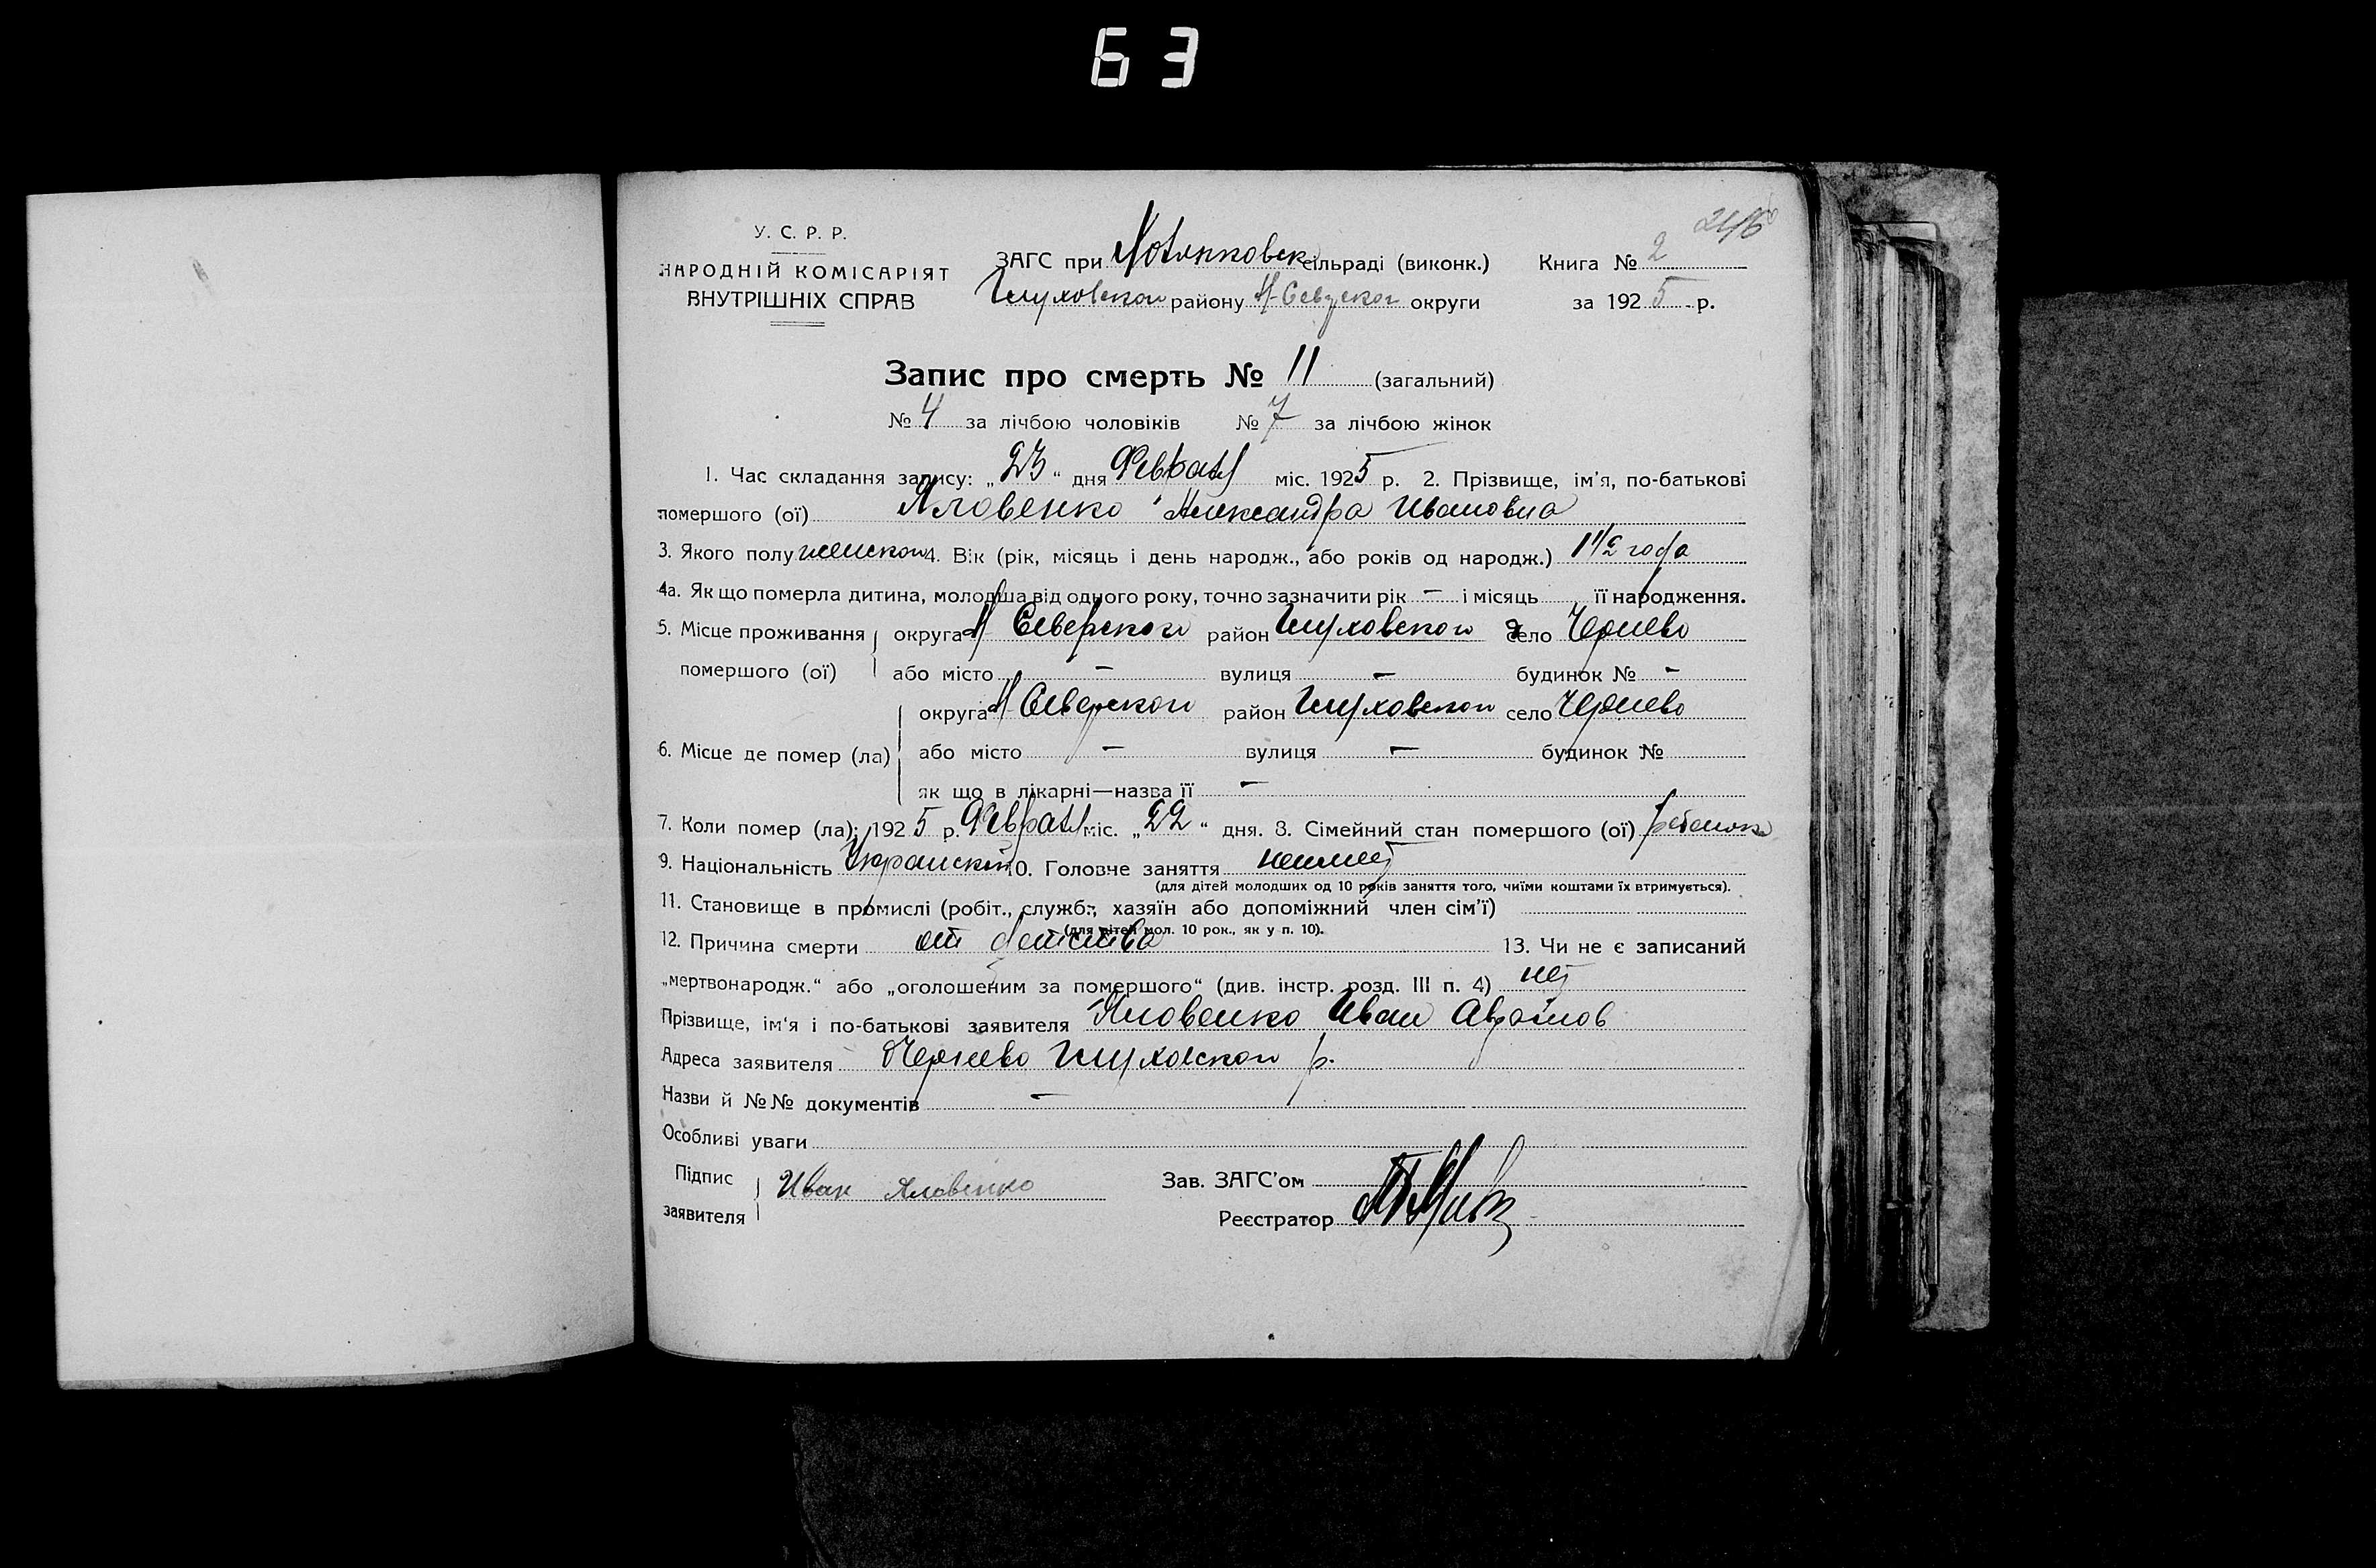 63
246
У. С. Р. Р.
НАРОДНІЙ КОМІСАРІЯТ
ВНУТРІШНІХ СПРАВ
ЗАГС при сільраді (виконк.) Книга № 2
Глуховского району Н-Северского округи за 1925 р.
Запис про смерть № 11 (загальний)
№ 4 за лічбою чоловіків № 7 за лічбою жінок
1. Час складання запису: „23“ дня Февраля міс. 1925 р. 2. Прізвище, ім'я, по-батькові
помершого (ої) Яловенко Александра Ивановна
3. Якого полу женского 4. Вік (рік, місяць і день народж., або років од народж.) 1 1/2 года
4а. Як що померла дитина, молодша від одного року, точно зазначити рік — і місяць її народження.
5. Місце проживання округа Н Северского район Глуховского село Чернево
помершого (ої) або місто — вулиця — будинок № -
округа Н Северского район Глуховского село Чернево
6. Місце де помер (ла) або місто — вулиця — будинок №
як що в лікарні—назва її —
7. Коли помер (ла): 1925 р. Февраля міс. „22“ дня. 8. Сімейний стан помершого (ої) ребенок
9. Національність 10. Головче заняття
(для дітей молодших од 10 років заняття того, чиїми коштами їх втримується).
11. Становище в промислі (робіт., служб., хазяїн або допоміжний член сім'ї)
(для дітей мол. 10 рок., як у п. 10).
12. Причина смерти от детства 13. Чи не є записаний
„мертвонародж.“ або „оголошеним за помершого“ (див. інстр. розд. III п. 4) нет
Прізвище, ім'я і по-батькові заявителя Яловенко Иван
Адреса заявителя Чернево Глуховского р.
Назви й №№ документів —
Особливі уваги
Підпис
заявителя Иван Яловенко
Зав. ЗАГС'ом
Реєстратор